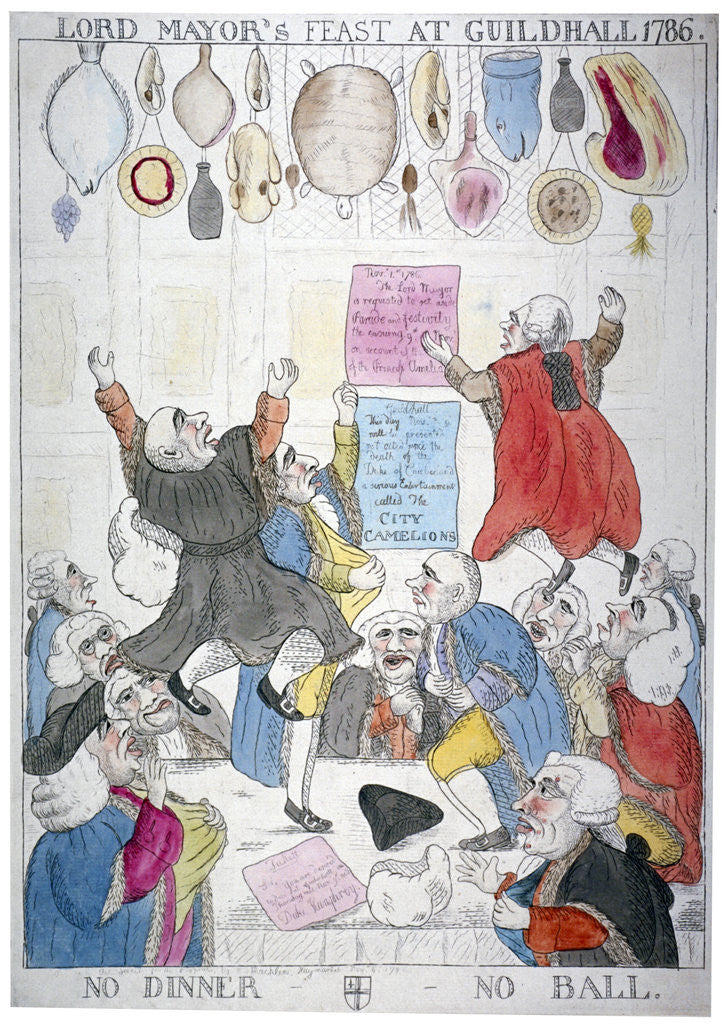 LORD MAYOR'S FEAST AT GUILDHALL 1786.
Nov.r 1.st 1786
The Lord Mayor
is requested to set aside
Parade and Festivity
the ensuing 9th Nov
on account of the
of the Princess Amelia
Guildhall
This day Nov.
will be presented
not acted since the
Death of the
Duke of Cumberland
a serious Entertainment
called The
CITY
CAMELIONS
Duke Humphrey
Haymarket Nov.
NO DINNER - - NO BALL.